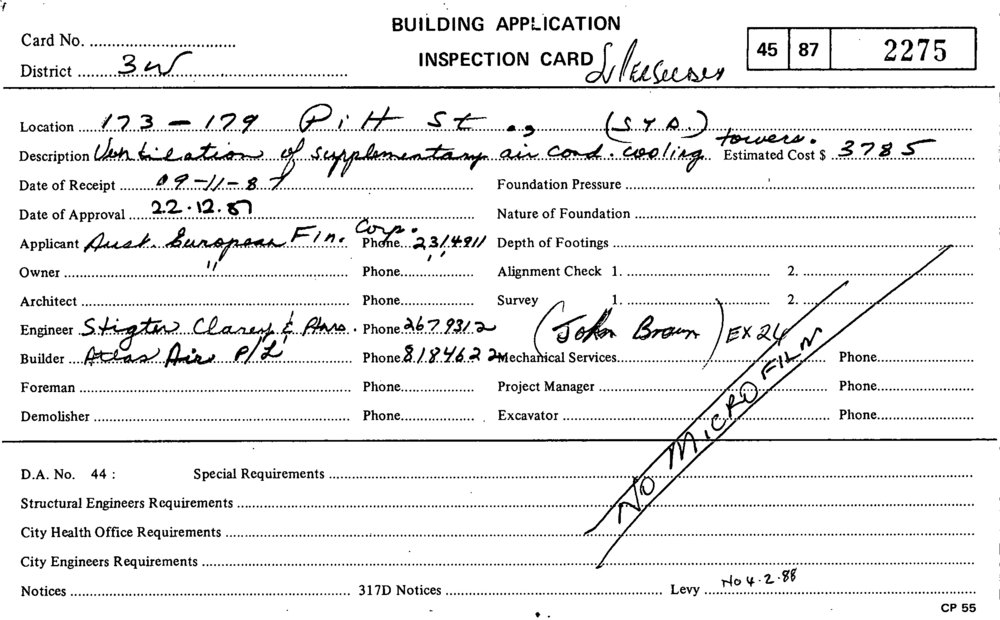 BUILDING APPLICATION
Card No.
INSPECTION CARD
45 87 2275
District 3W
Location 173 – 179 Pitt St., (SYD.)
Description Ventilation of supplementary air cond. cooling towers. Estimated Cost $ 3785
Date of Receipt 09-11-87 Foundation Pressure
Date of Approval 22.12.87 Nature of Foundation
Applicant Aust. European Fin. Corp. Phone 2314911 Depth of Footings
Owner " Phone " Alignment Check 1. 2.
Architect Phone Survey 1. 2.
Engineer Stigter Clarey & Ptnrs. Phone 2679312 (John Brown) EX 24
Builder Atlas Air P/L Phone 8184622 Mechanical Services Phone
Foreman Phone Project Manager Phone
Demolisher Phone Excavator Phone
NO MICROFILM
D.A. No. 44 : Special Requirements
Structural Engineers Requirements
City Health Office Requirements
City Engineers Requirements
Notices 317D Notices Levy No 4.2.88
CP 55